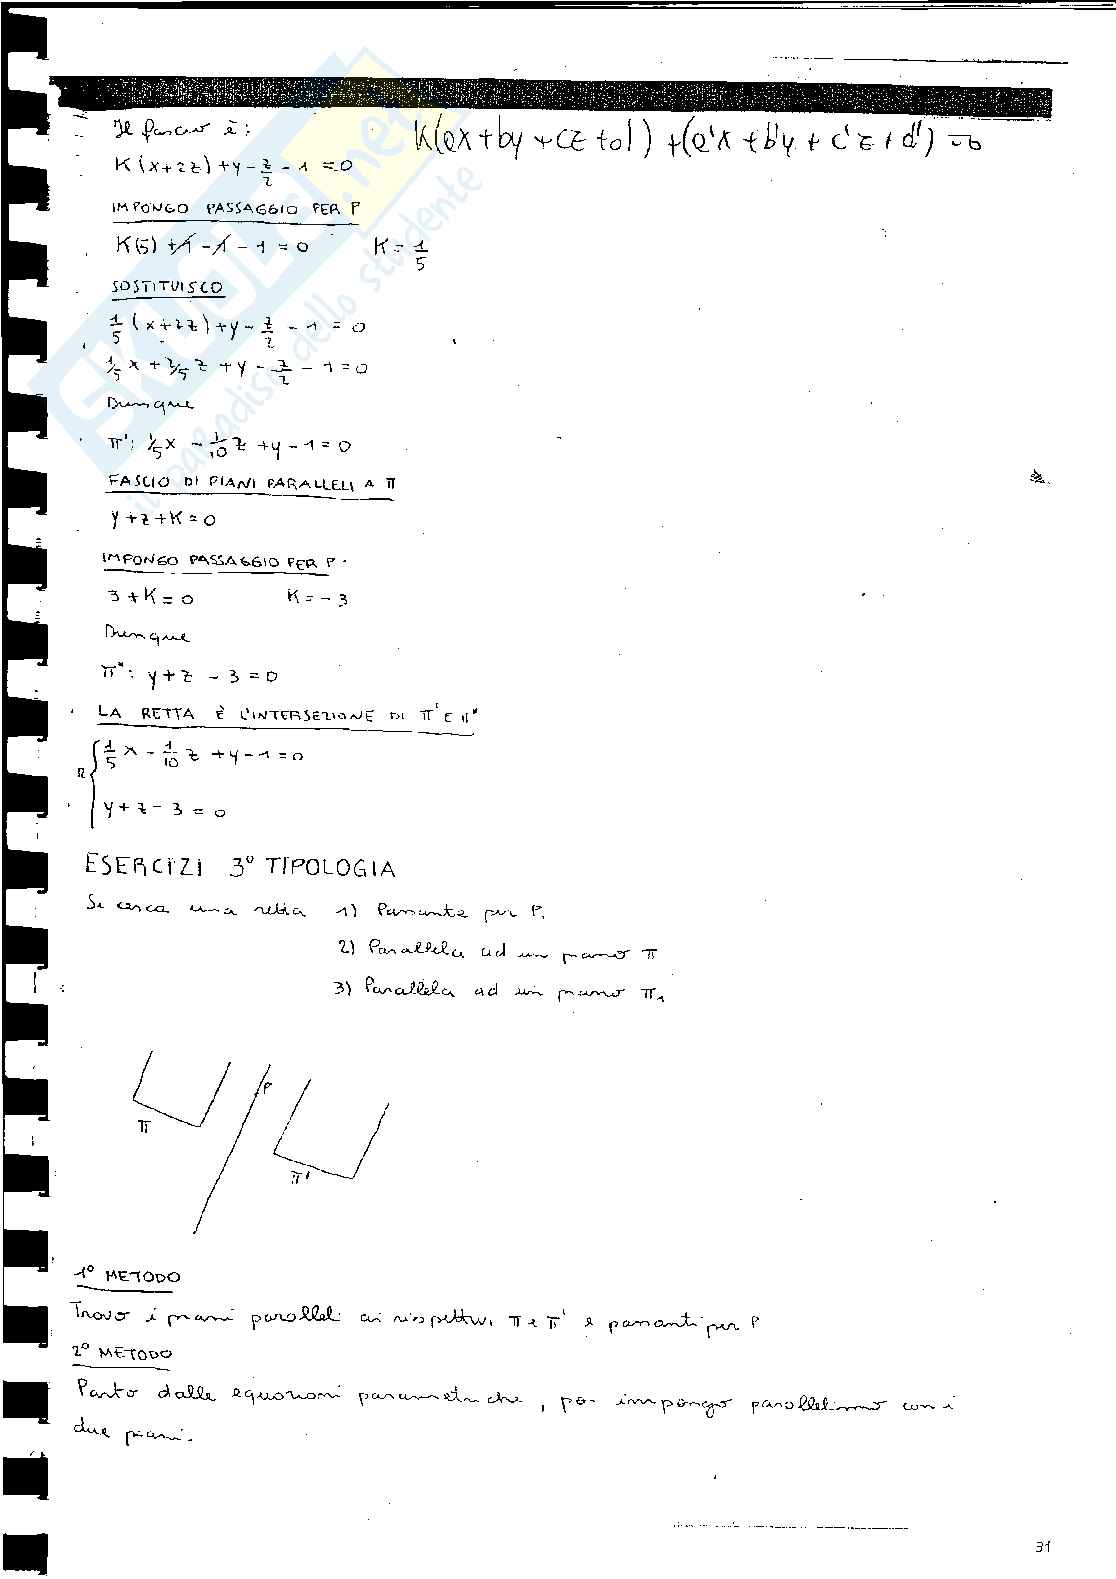 Il fascio è: K(ax+by+cz+d)+(a'x+b'y+c'z+d')=0
K(x+2z)+y-z/2-1=0
IMPONGO PASSAGGIO PER P
K(5)+1-1-1=0 K=1/5
SOSTITUISCO
1/5(x+2z)+y-z/2-1=0
1/5x+2/5z+y-z/2-1=0
Dunque
π': 1/5x-1/10z+y-1=0
FASCIO DI PIANI PARALLELI A π
y+z+K=0
IMPONGO PASSAGGIO PER P.
3+K=0 K=-3
Dunque
π": y+z-3=0
LA RETTA È L'INTERSEZIONE DI π' E π"
r { 1/5x-1/10z+y-1=0
y+z-3=0
ESERCIZI 3° TIPOLOGIA
Si cerca una retta 1) Passante per P.
2) Parallela ad un piano π
3) Parallela ad un piano π1
P
π
π'
1° METODO
Trovo i piani paralleli ai rispettivi π e π' e passanti per P
2° METODO
Parto dalle equazioni parametriche, poi impongo parallelismo con i
due piani.
31
SKUOLA.net
il paradiso dello studente